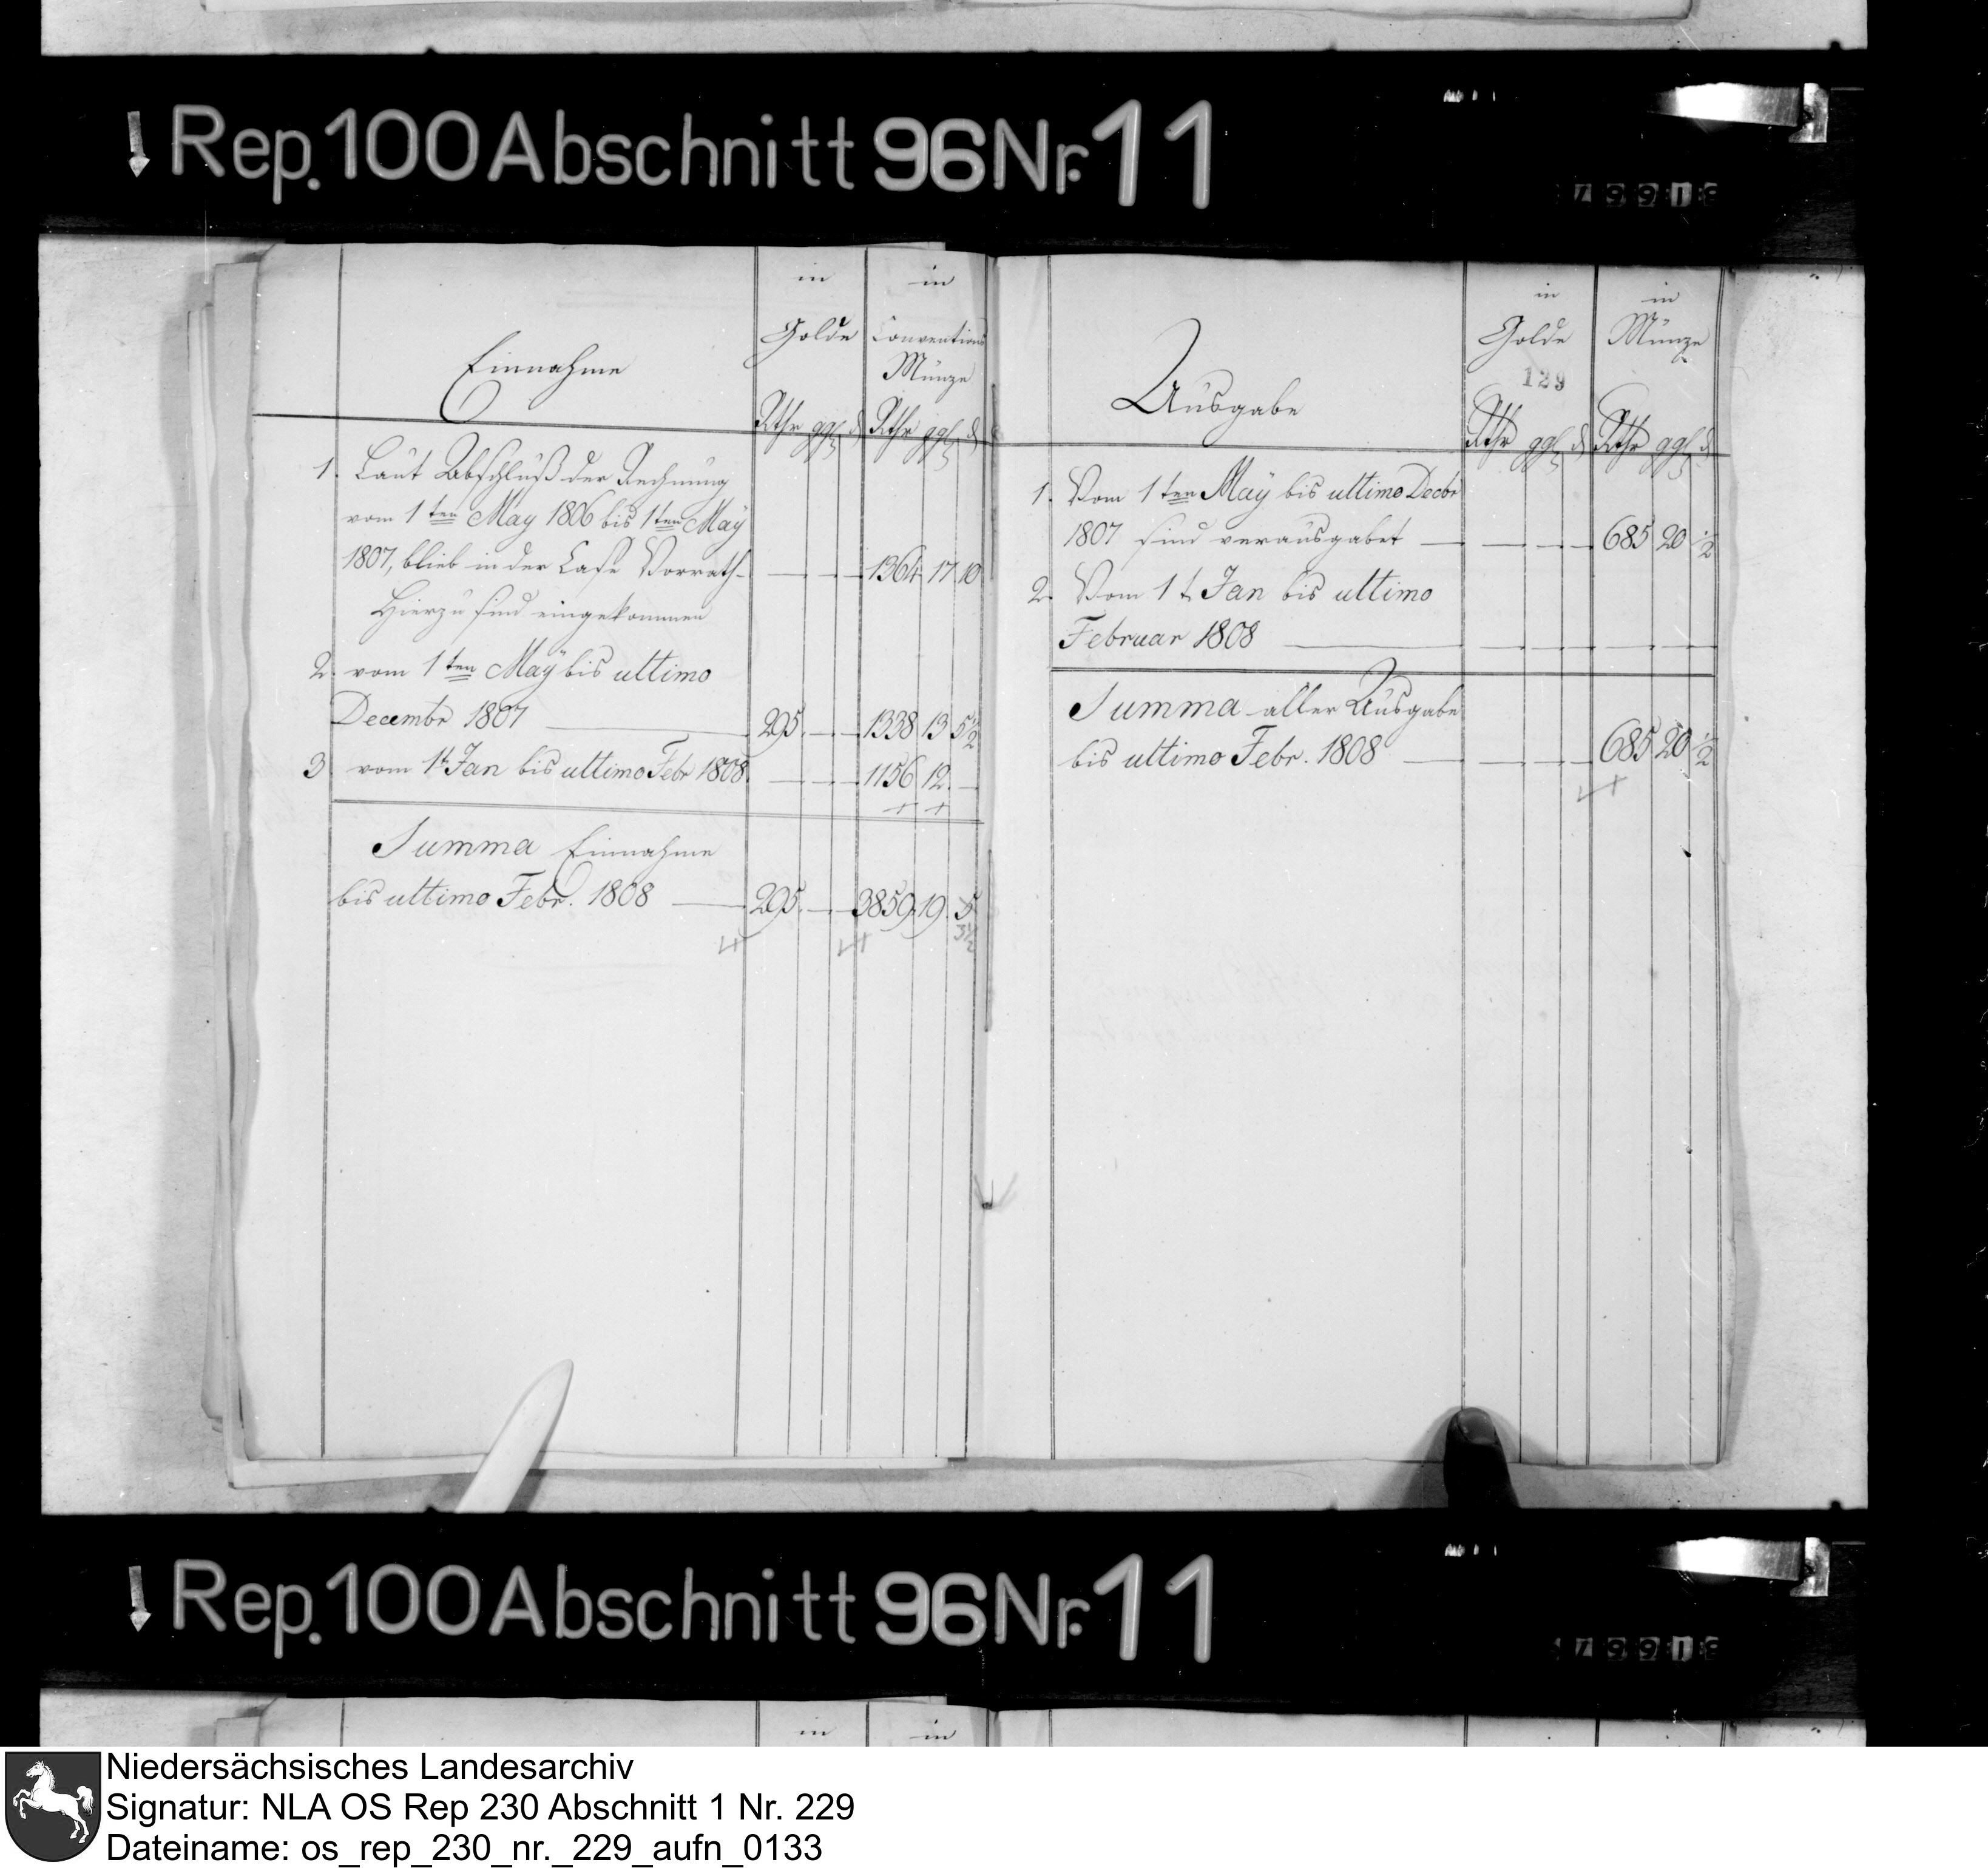 Rep. 100 Abschnitt 96 Nr. 11
Einnahme
in
Golde
in
Conventions
Münze
Rthr ggl d
Rthr ggl d
1. Laut Abschluß der Rechnung
vom 1ten May 1806 bis 1ten May
1807, blieb in der Casse Vorrath — — — 1364 17 10
Hierzu sind eingekommen
2. vom 1ten May bis ultimo
Decembr 1807 — 295 — — 1338 13 5 1/2
3 vom 1t Jan bis ultimo Febr 1808. — — — 1156 12 —
Summa Einnahme
bis ultimo Febr. 1808 — 295 — — 3859 19 5
3 1/2
Ausgabe
in
Golde
129
in
Münze
Rthr ggl d
Rthr ggl d
1. Vom 1ten May bis ultimo Decbr
1807 sind verausgabet — — — — 685 20 1/2
2. Vom 1t Jan bis ultimo
Februar 1808 — — — — — — —
Summa aller Ausgabe
bis ultimo Febr. 1808 — — — — 685 20 1/2
Rep. 100 Abschnitt 96 Nr. 11
in
in
Niedersächsisches Landesarchiv
Signatur: NLA OS Rep 230 Abschnitt 1 Nr. 229
Dateiname: os_rep_230_nr._229_aufn_0133